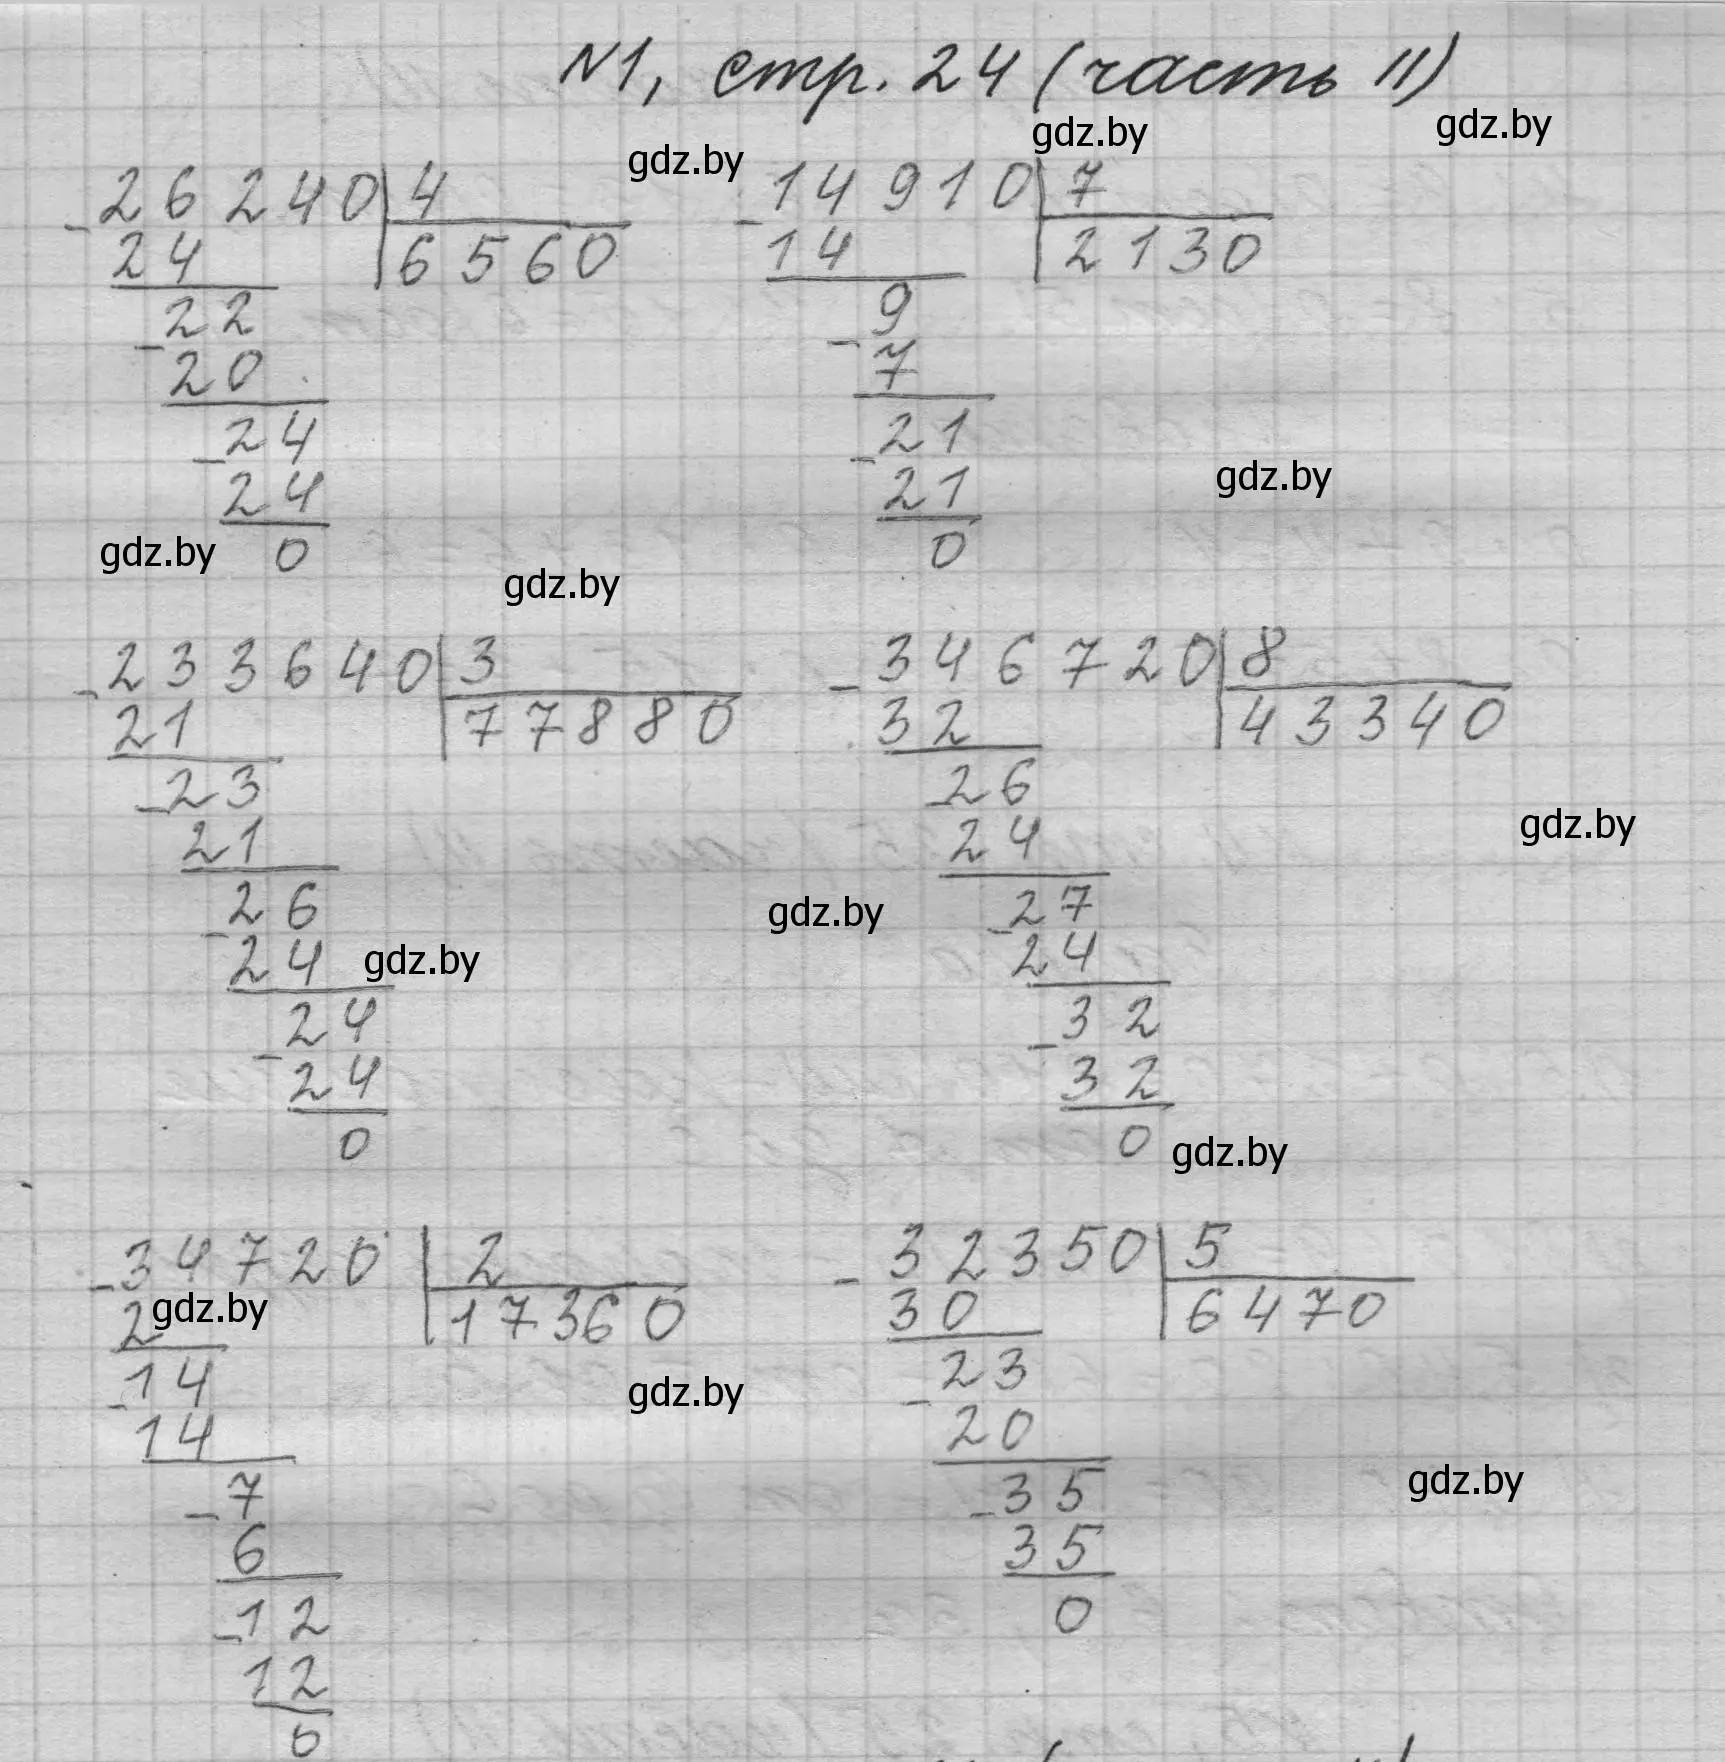 N1, стр. 24 (часть II)
gdz.by
gdz.by
gdz.by
-26240 4
24 6560
-22
20
-24
24
0
-14910 7
14 2130
9
-7
-21
21
0
gdz.by
gdz.by
gdz.by
-233640 3
21 77880
-23
21
-26
24
gdz.by
-24
24
0
-346720 8
32 43340
-26
24
gdz.by
gdz.by
-27
24
-32
32
0
gdz.by
-34720 2
2 17360
gdz.by
-14
14
gdz.by
-7
6
-12
12
0
-32350 5
30 6470
-23
20
-35
gdz.by
35
0